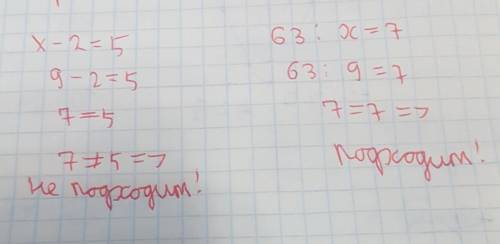 x - 2 = 5
9 - 2 = 5
7 = 5
7 ≠ 5 =>
не подходит!
63 : x = 7
63 : 9 = 7
7 = 7 =>
подходит!